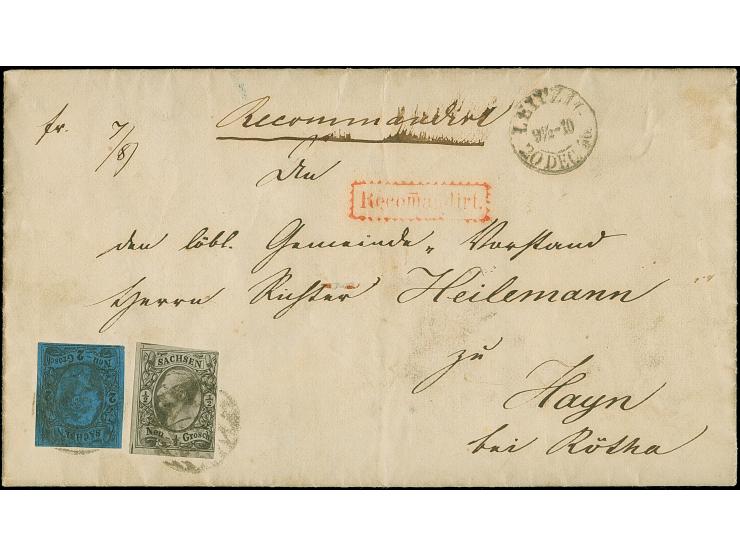 Recommandirt
fr. 7/8)
LEIPZIG
9½-10
20 DEC. 56.
An
Recom̄andirt.
den löbl. Gemeinde-Vorstand
Herrn Richter Heilemann
zu
Hayn
bei Rötha
SACHSEN
2 2
Neu 2 Grosch
SACHSEN
½ ½
Neu ½ Grosch